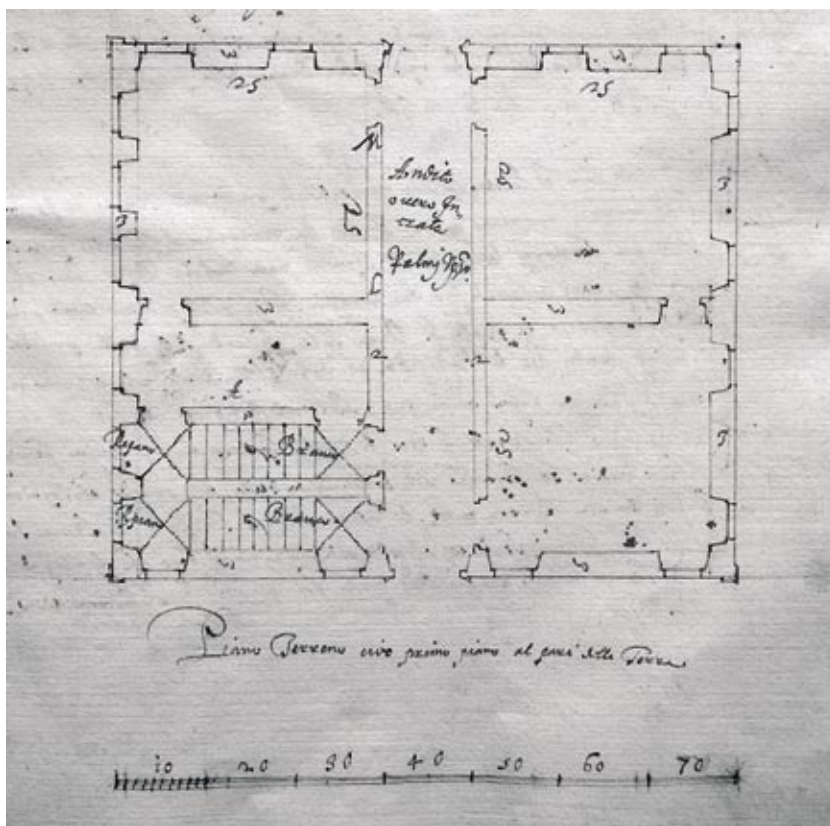 3 3
25 25
Andito
overo In
trata
Palmi
25
25
3
3
3
3
25
A
Repiano Branca
Repiano Branca
3
Piano Terreno cioè primo piano al pari della Terra
10 20 30 40 50 60 70